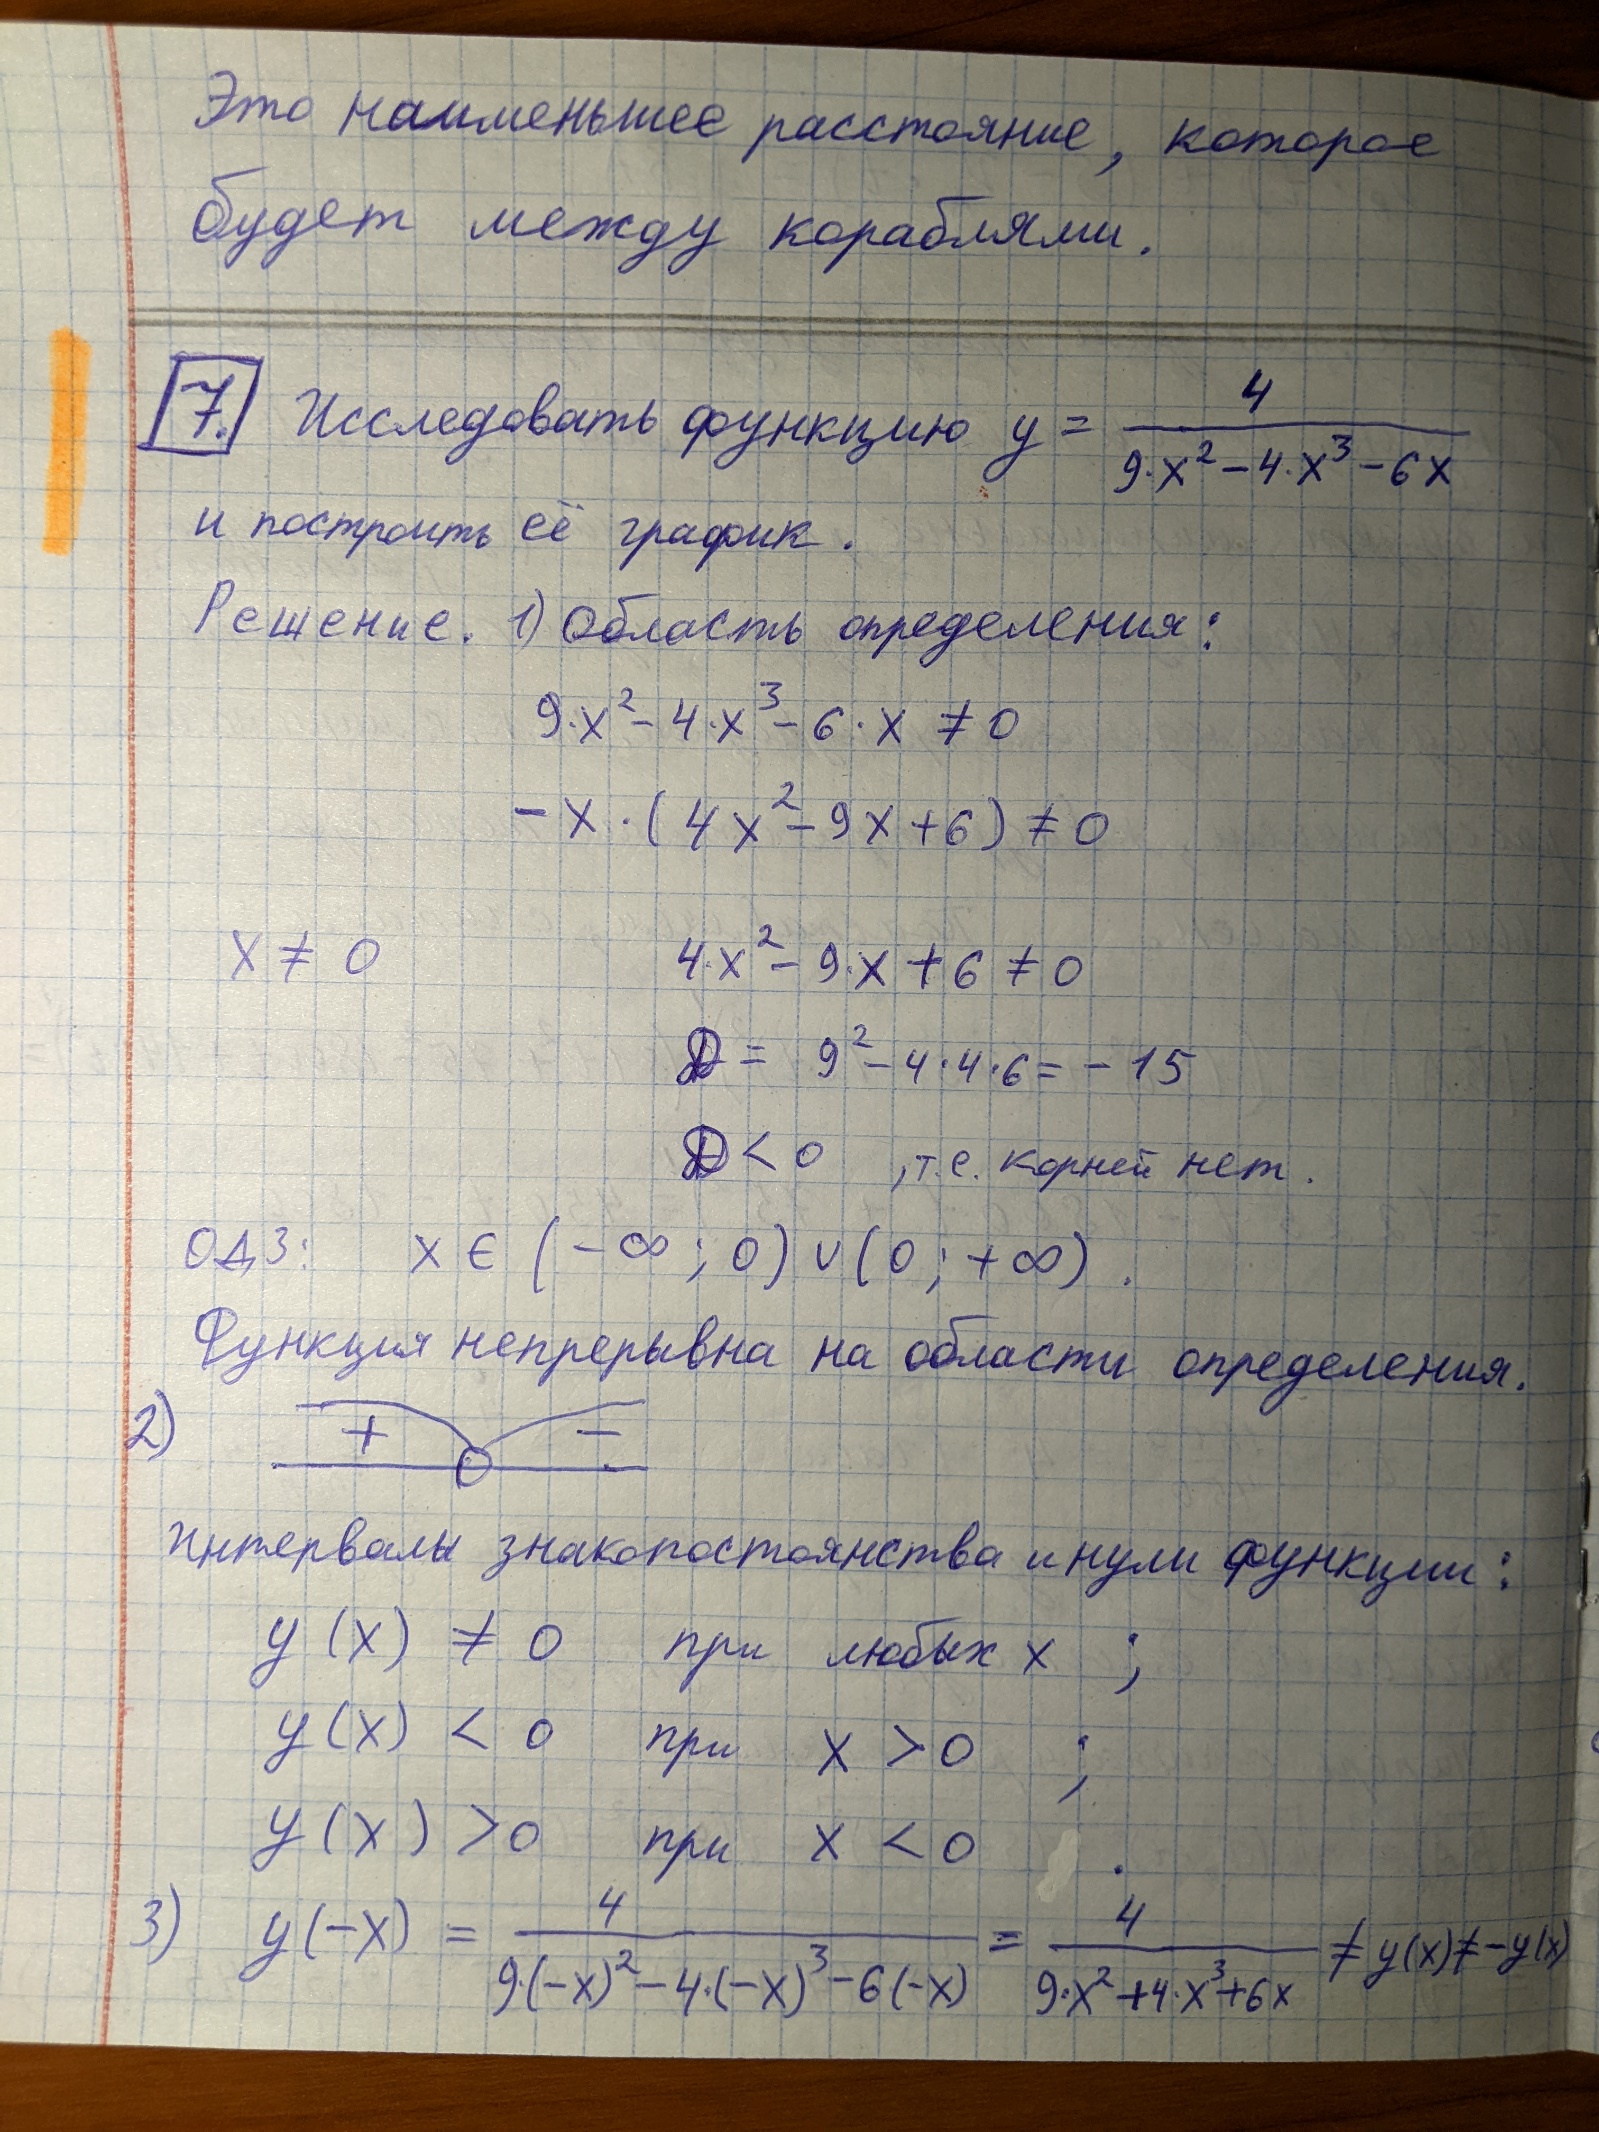 Это наименьшее расстояние, которое
будет между кораблями.
7. Исследовать функцию y = 4 / (9·x² - 4·x³ - 6x)
и построить её график.
Решение. 1) Область определения:
9·x² - 4·x³ - 6·x ≠ 0
-x·(4x² - 9x + 6) ≠ 0
x ≠ 0 4·x² - 9·x + 6 ≠ 0
D = 9² - 4·4·6 = -15
D < 0 , т.е. корней нет.
ОДЗ: x ∈ (-∞; 0) ∪ (0; +∞).
Функция непрерывна на области определения.
2) + 0 -
Интервалы знакопостоянства и нули функции:
y(x) ≠ 0 при любых x ;
y(x) < 0 при x > 0 ;
y(x) > 0 при x < 0 .
3) y(-x) = 4 / (9·(-x)² - 4·(-x)³ - 6(-x)) = 4 / (9·x² + 4·x³ + 6x) ≠ y(x) ≠ -y(x)